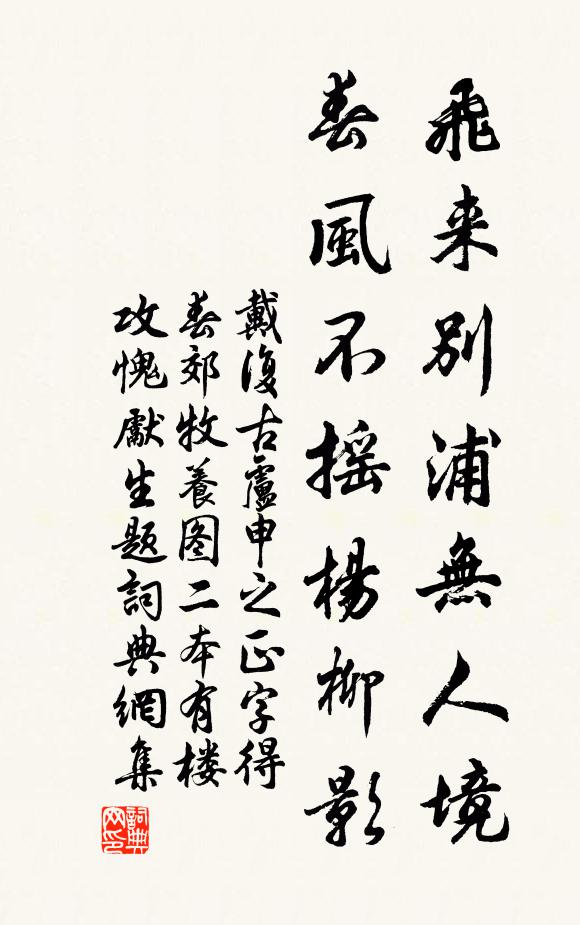 飛来別浦無人境
春風不摇楊柳影
戴復古廬申之正字得
春郊牧養图二本有楼
攻愧獻生題詞典網集
詞典网印